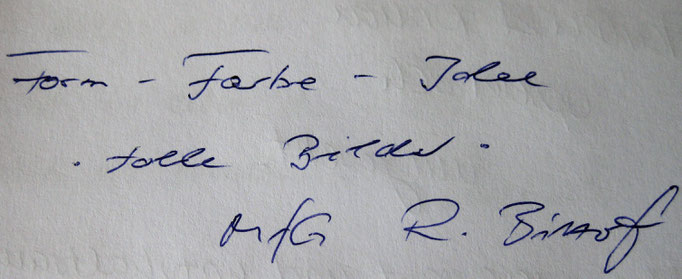 Form - Farbe - Idee
. tolle Bilder .
MfG R.